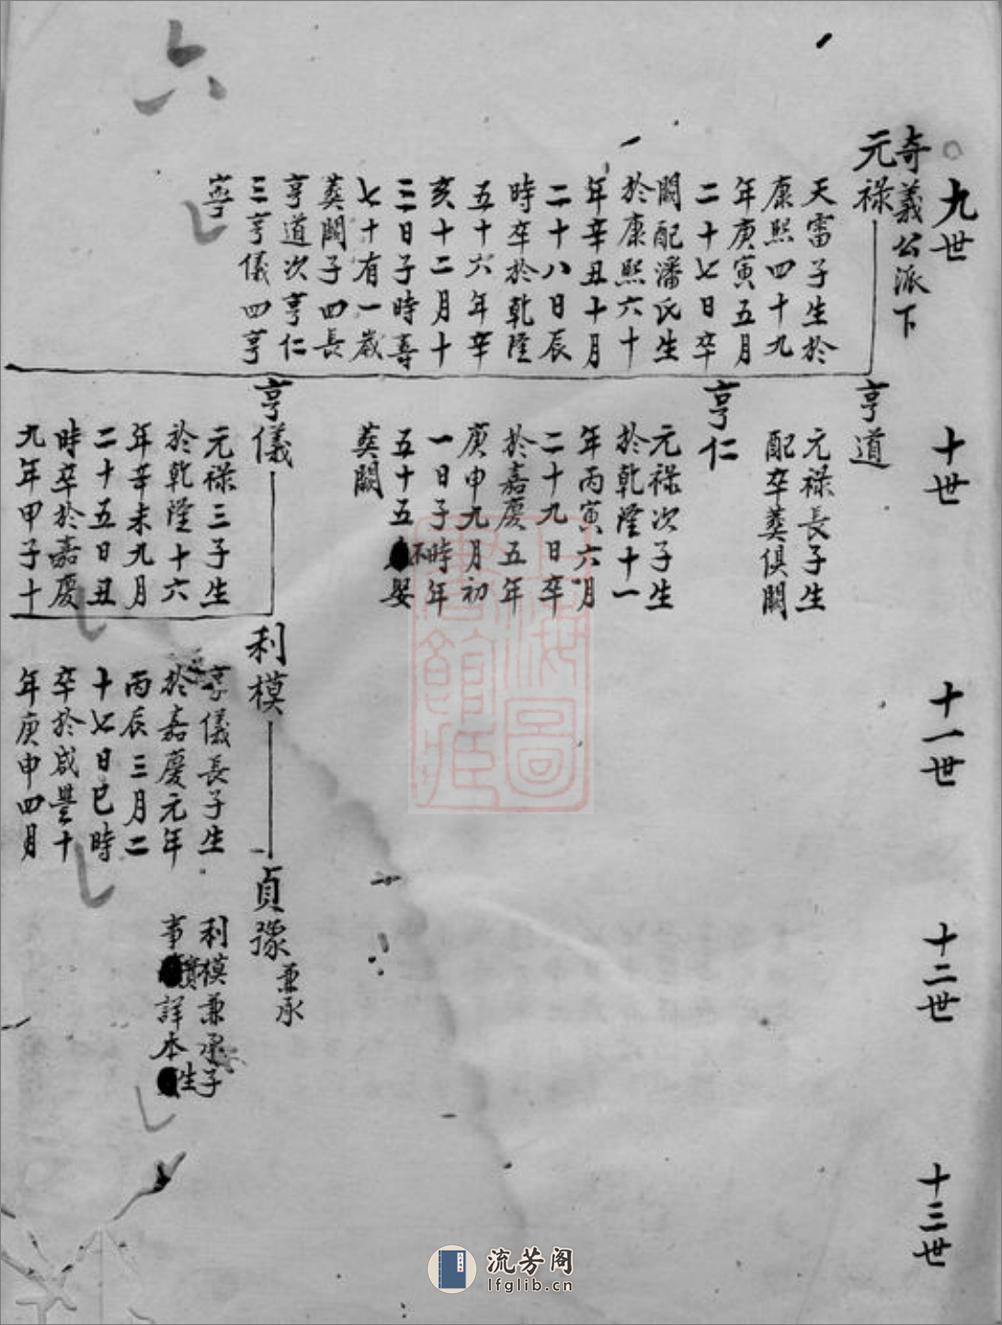 六
九世
奇義公派下
元祿
天雷子生於
康熙四十九
年庚寅五月
二十七日卒
闕配潘氏生
於康熙六十
年辛丑十月
二十八日辰
時卒於乾隆
五十六年辛
亥十二月十
三日子時壽
七十有一歲
葬闕子四長
亨道次亨仁
三亨儀四亨
寧
十世
亨道
元祿長子生
配卒葬俱闕
亨仁
元祿次子生
於乾隆十一
年丙寅六月
二十九日卒
於嘉慶五年
庚申九月初
一日子時年
五十五不娶
葬闕
亨儀
元祿三子生
於乾隆十六
年辛未九月
二十五日丑
時卒於嘉慶
九年甲子十
十一世
利模
亨儀長子生
於嘉慶元年
丙辰三月二
十七日巳時
卒於咸豐十
年庚申四月
十二世
貞豫
兼承
利模兼承子
事實詳本生
十三世
上海圖
書館藏
流芳阁
lfglib.cn